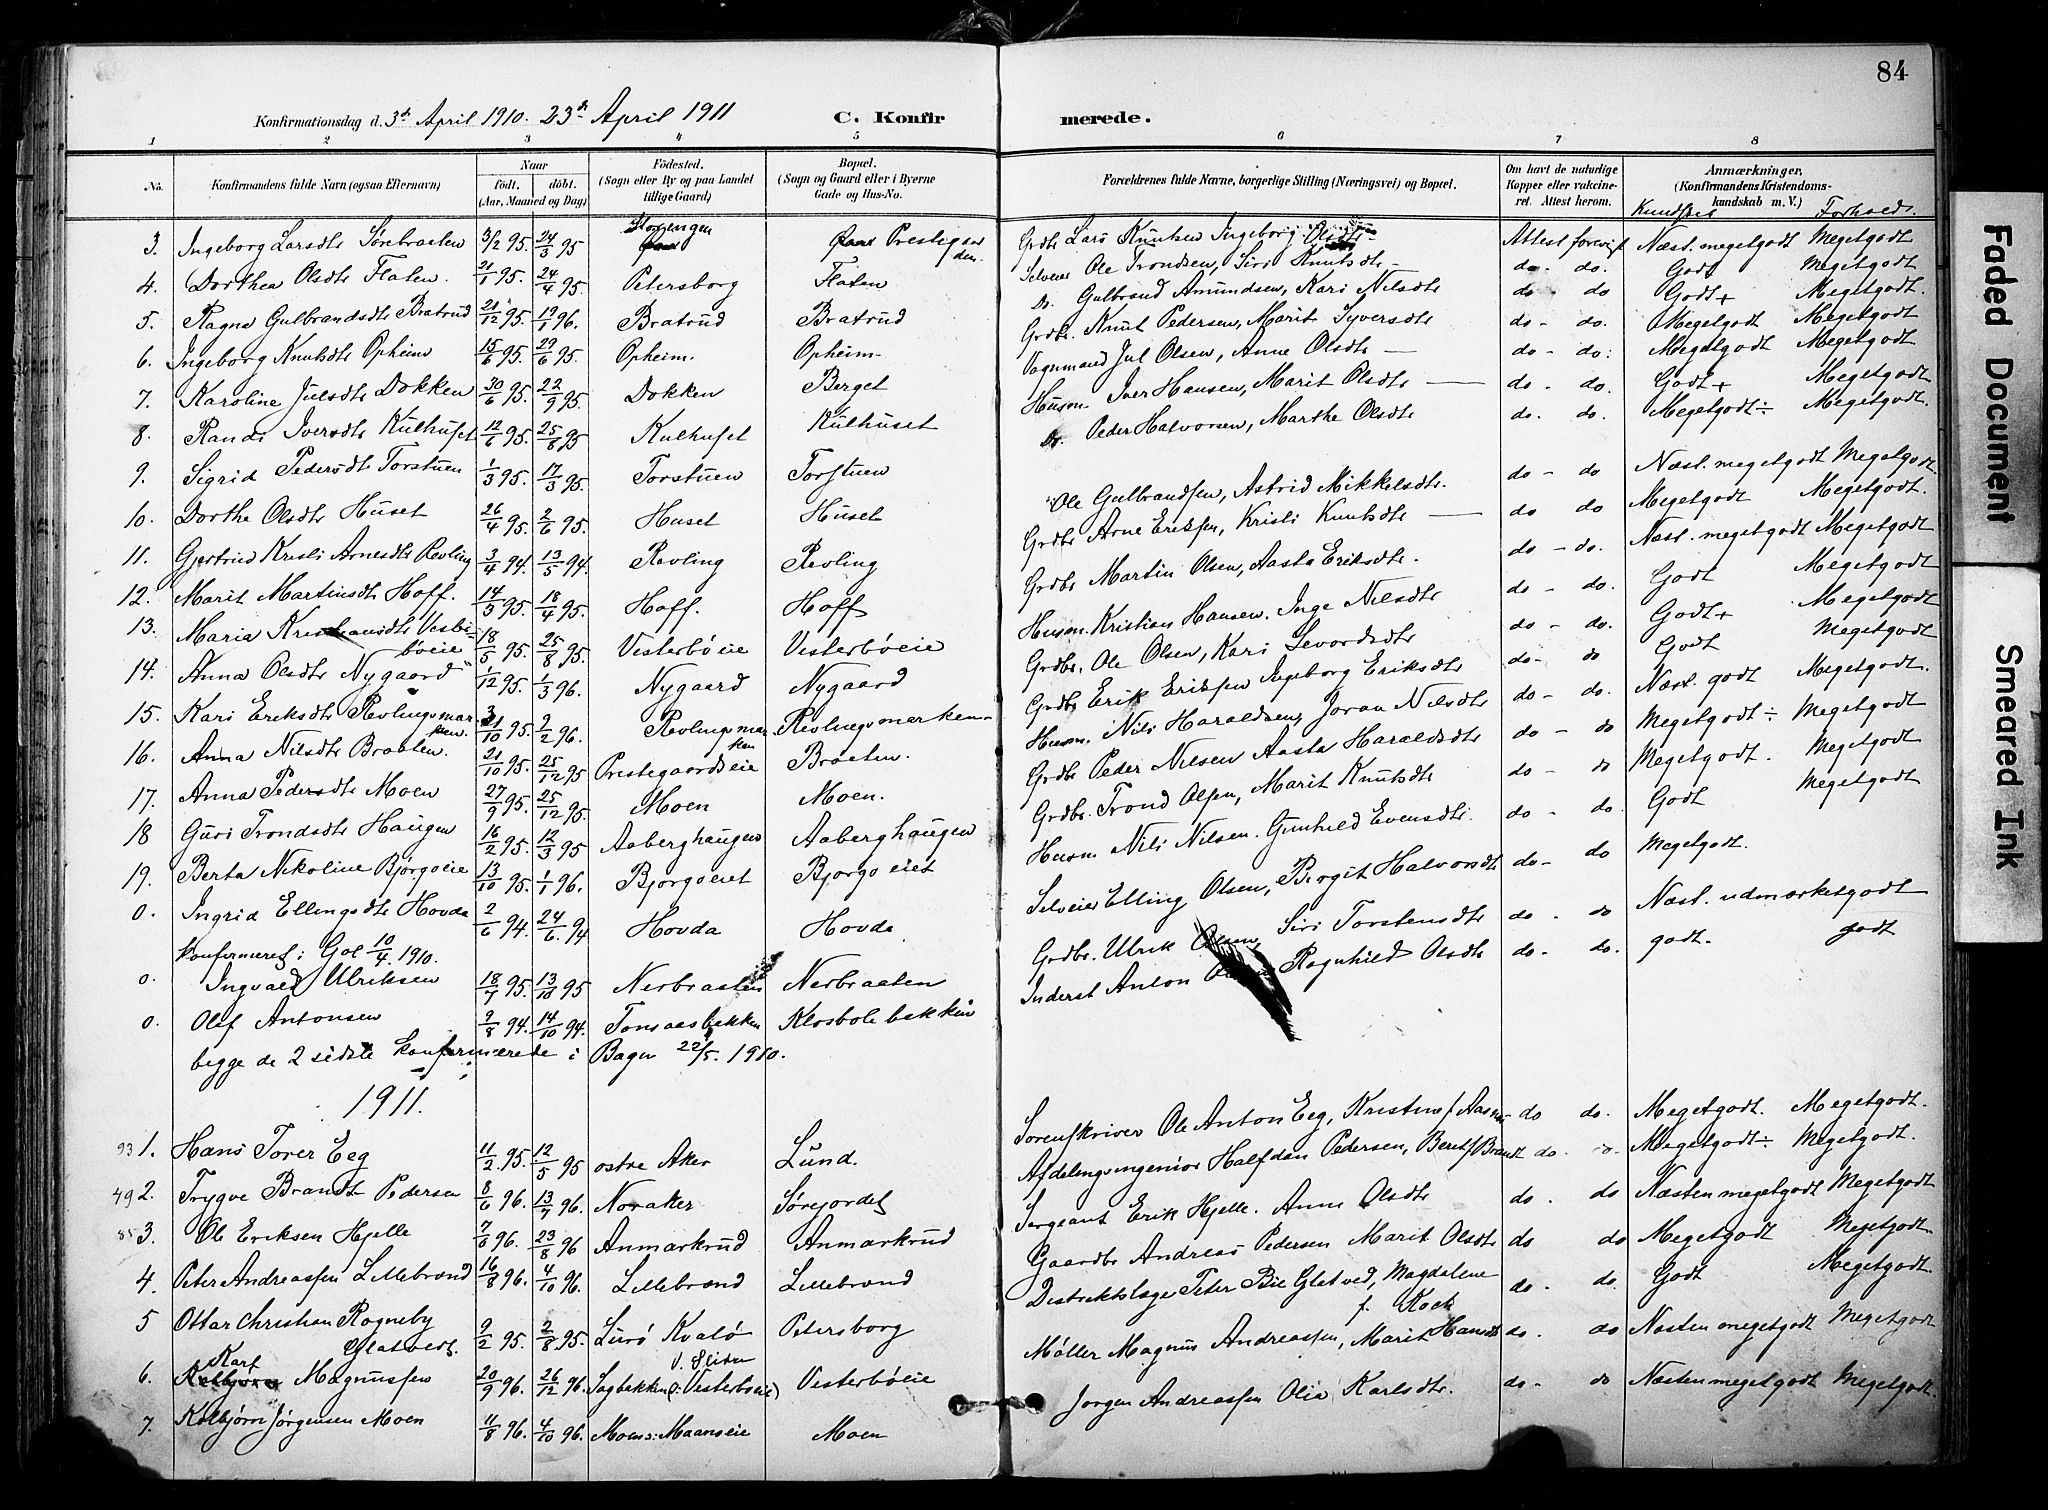 84
Konfirmationsdag d. 3die April 1910. 23de April 1911 C. Konfirmerede.
1 2 3 4 5 6 7 8
No. Konfirmandens fulde Navn (ogsaa Efternavn) Naar født. døbt. (Aar, Maaned og Dag) Fødested. (Sogn eller By og paa Landet tillige Gaard) Bopæl. (Sogn og Gaard eller i Byerne Gade og Hus-No. Forældrenes fulde Navne, borgerlige Stilling (Næringsvei) og Bopæl. Om havt de naturlige Kopper eller vaccineret. Attest herom. Anmærkninger, (Konfirmandens Kristendomskundskab m. V.) Kundskab Forhold.
3. Ingeborg Larsdtr Sørebraaten 3/2 95. 24/3 95 Storengen Prestigaarden. Grdbr Lars Knutsen Ingeborg Olsdtr Attest forevist Næst. megetgodt Megetgodt
4. Dorthea Olsdtr Flaten. 21/1 95. 24/4 95. Petersborg Flaten Selveier Ole Trondsen, Siri Knutsdtr - do. do. Godt Megetgodt
5. Ragna Gulbrandsdtr Bratrud 21/12 95. 19/1 96. Bratrud Bratrud Do. Gulbrand Amundsen, Kari Nilsdtr do - do Godt+ Megetgodt.
6. Ingeborg Knutsdtr Opheim 15/6 95. 29/6 95. Opheim. Opheim- Grdbr. Knut Pedersen, Marit Syversdtr do - do. Megetgodt Megetgodt
7. Karoline Julsdtr Dokken 30/6 95. 22/9 95. Dokken Berget Vognmand Jul Olsen, Anne Olsdtr - do - do: Megetgodt Megetgodt
8. Randi Iversdtr Kulhuset 12/6 95. 25/8 95 Kulhuset Kulhuset Husm. Iver Hansen, Marit Olsdtr - do - do. Godt+ Megetgodt
9. Sigrid Pedersdtr Torstuen 1/3 95. 17/3 95. Torstuen Torstuen Do. Peder Halvorsen, Marthe Olsdtr do. do. Megetgodt÷ Megetgodt.
10. Dorthe Olsdtr Huset 26/4 95. 2/6 95. Huset Huset Ole Gulbrandsen, Astrid Mikkelsdtr. do - do Næst. megetgodt Megetgodt.
11. Gjertrud Kristi Arnesdtr Revling 3/4 94. 13/5 94. Revling Revling Grdbr Arne Eriksen, Kristi Knutsdtr - do do Megetgodt Megetgodt.
12. Marit Martinsdtr Hoff. 14/3 95. 18/4 95. Hoff. Hoff Grdbr Martin Olsen, Aasta Eriksdtr. do - do. Næst. megetgodt Megetgodt
13. Maria Kristiansdtr Vesterbøeie 18/5 95. 25/8 95. Vesterbøeie Vesterbøeie Husm. Kristian Hansen. Inge Nilsdtr do - do. Godt Megetgodt
14. Anna Olsdtr Nygaard 1/12 95. 1/3 96. Nygaard Nygaard Grdbr. Ole Olsen, Kari Sevordsdtr do - do. Godt+ Megetgodt
15. Kari Eriksdtr Revlingsmarken. 3/10 95. 2/2 96. Revlingsmarken Revlingsmarken- Grdbr Erik Eriksen Ingeborg Eriksdtr do- do Godt Megetgodt
16. Anna Nilsdtr Braaten. 21/10 95. 25/12 95 Prestegaardseie Braaten. Husm. Nils Haraldsen, Joran Nilsdtr do - do. Næst. godt Megetgodt.
17. Anna Pedersdtr Moen 27/9 95. 25/12 95. Moen Moen. Grdbr Peder Nilsen Aasta Haraldsdtr do - do Megetgodt÷ Megetgodt
18 Guri Trondsdtr Haugen 16/2 95. 12/3 95 Aaberghaugen Aaberghaugen Grdbr. Trond Olsen, Marit Knutsdtr do - do Megetgodt. Megetgodt
19. Berta Nikoline Bjørgoeie 13/10 95. 1/1 96. Bjørgoeiet Bjorgoeiet Husm Nils Nilsen. Gunhild Evensdtr. do - do. Godt Megetgodt
0. Ingrid Ellingsdtr Hovda 2/6 94. 24/6 94 Hovda Hovda. Selveier Elling Olsen, Birgit Halvorsdtr do- do Megetgodt.
Konfirmeret i Gol 10/4. 1910.
0. Ingvald Ulriksen 18/7 95. 13/10 95 Nerbraaten Nerbraaten Grdbr. Ulrik Olsen, Siri Torstensdtr do. do Næst. udmerketgodt
0. Olef Antonsen 9/8 94. 14/10 94. Tonsaasbakken Klosbolebakken Inderst Anton Ragnhild Olsdtr do- do. godt. godt
begge de 2 sidste konfirmerede i Bagn 22/5. 1910.
1911.
93 1. Hans Torer Eeg 11/2 95. 12/5 95 østre Aker Lund. Sorenskriver Ole Anton Eeg, Kristine f. Aasen do do. Megetgodt. Megetgodt.
49 2. Trygve Brandt Pedersen 8/6 96. 13/7 96. Noraker Sørejordet Afdelingsingeniør Halfdan Pedersen, Berit f. Brandt do. do. Megetgodt÷ Megetgodt.
85 3. Ole Eriksen Hjelle 7/6 96. 23/8 96 Anmarkrud Anmarkrud Sergeant Erik Hjelle. Anne Olsdtr do. do Næsten megetgodt Megetgodt
4. Peter Andreassen Lillebrænd 16/8 96. 4/10 96. Lillebrænd Lillebrænd Gaardbr Andreas Pedersen Marit Olsdtr do do Megetgodt Megetgodt
5 Ottar Christian Rogneby Glatvedt. 9/2 95. 2/8 95. Lurø Kvalø Petersborg Distriktslæge Peter Bie Glatved, Magdalene f. Koch do. do. Godt Megetgodt.
6. Karl Magnussen 20/9 96. 26/12 96. V. Slidre Sagbakken (: Vesterbøeie) Vesterbøeie Møller Magnus Andreassen, Marit Hansdtr do. do Næsten megetgodt Megetgodt
7. Kolbjørn Jørgensen Moen 11/8 96. 4/10 96. Moen: Maanseie Moen Jørgen Andreassen Olia Karlsdtr. do- do Næsten megetgodt Megetgodt.
Faded Document
Smeared Ink